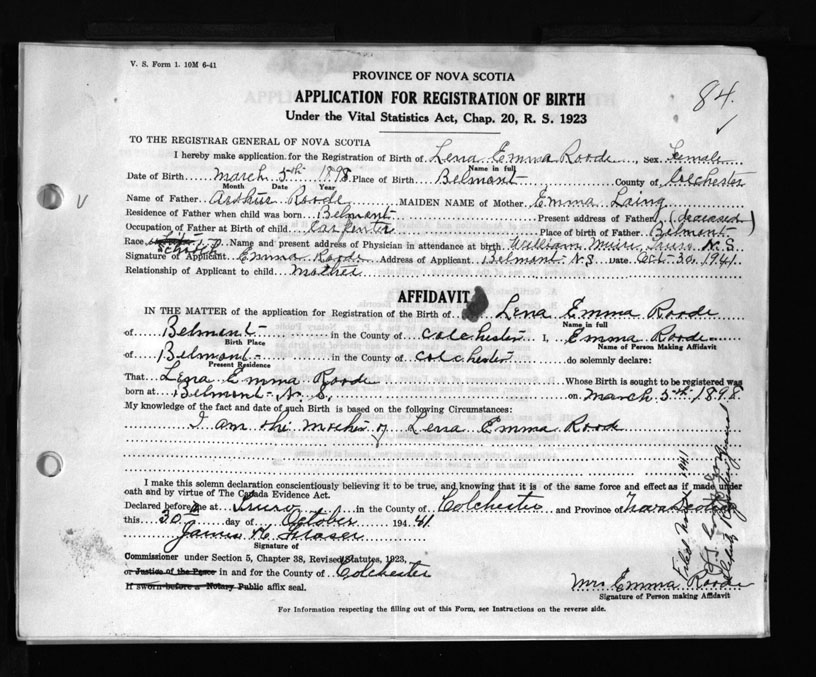 V. S. Form 1. 10M 6-41
PROVINCE OF NOVA SCOTIA
84.
APPLICATION FOR REGISTRATION OF BIRTH
Under the Vital Statistics Act, Chap. 20, R. S. 1923
TO THE REGISTRAR GENERAL OF NOVA SCOTIA
I hereby make application for the Registration of Birth of Lena Emma Roode, Sex Female
Name in full
Date of Birth March 5th 1898 Place of Birth Belmont County of Colchester
Month Date Year
Name of Father Arthur Roode MAIDEN NAME of Mother Emma Laing
Residence of Father when child was born Belmont Present address of Father (deceased)
Occupation of Father at Birth of child Carpenter Place of birth of Father Belmont
Race Scotch Name and present address of Physician in attendance at birth William Muir, Truro N.S.
Signature of Applicant Emma Roode Address of Applicant Belmont N.S Date Oct-30, 1941
Relationship of Applicant to child Mother
AFFIDAVIT
IN THE MATTER of the application for Registration of the Birth of Lena Emma Roode
Name in full
of Belmont in the County of Colchester I, Emma Roode
Birth Place Name of Person Making Affidavit
of Belmont in the County of Colchester do solemnly declare:
Present Residence
That Lena Emma Roode Whose Birth is sought to be registered was
born at Belmont N.S. on March 5th 1898
My knowledge of the fact and date of such Birth is based on the following Circumstances:
I am the mother of Lena Emma Roode
I make this solemn declaration conscientiously believing it to be true, and knowing that it is of the same force and effect as if made under
oath and by virtue of The Canada Evidence Act.
Declared before me at Truro in the County of Colchester and Province of Nova Scotia
this 30 day of October 194 41
James N. Fraser
Signature of
Commissioner under Section 5, Chapter 38, Revised Statutes, 1923,
or Justice of the Peace in and for the County of Colchester
If sworn before a Notary Public affix seal.
Mrs Emma Roode
Signature of Person making Affidavit
For Information respecting the filling out of this Form, see Instructions on the reverse side.
Deputy Registrar General